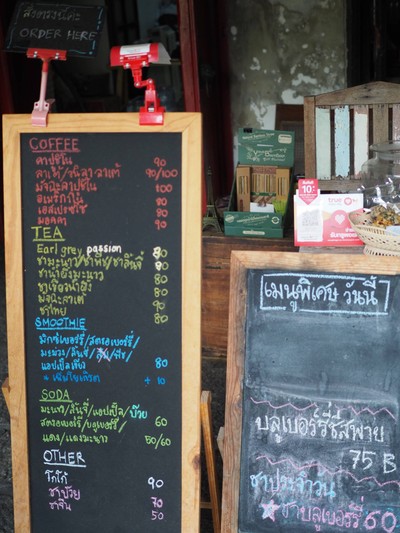 สั่งตรงนี้ค่ะ
ORDER HERE
COFFEE
คาปูชิโน 90
ลาเต้/วนิลา ลาเต้ 90/100
มัจฉะลาปูชิโน 100
อเมริกาโน่ 80
เอสเปรซโซ่ 80
มอคค่า 90
TEA
Earl grey passion 80
ชามะนาว/ชาพีช/ชาลิ้นจี่ 80
ชาน้ำผึ้งมะนาว 80
ชาเขียวน้ำผึ้ง 80
มัจฉะลาเต้ 90
ชาไทย 80
SMOOTHIE
มิกซ์เบอร์รี่/สตรอเบอร์รี่/
มะม่วง/ลิ้นจี่/ส้ม/พีช/
แอปเปิ้ลเขียว 80
* เพิ่มโยเกิร์ต + 10
SODA
มะนาว/ลิ้นจี่/แอปเปิ้ล/บ๊วย
สตรอเบอรี่/บลูเบอรี่/ 60
แดง/แดงมะนาว 50/60
OTHER
โกโก้ 90
ชาบ๊วย 70
ชาจีน 50
10
true
เมนูพิเศษ วันนี้
บลูเบอร์รี่ชีสพาย
75 B
ชาประจำวัน
ชาบลูเบอร์รี่ 60